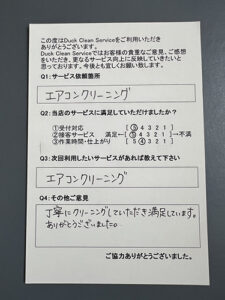 この度はDuck Clean Serviceをご利用いただき
ありがとうございます。
Duck Clean Serviceではお客様の貴重なご意見、ご感想
をいただき、更なるサービス向上に反映していきたいと
思っております。今後とも宜しくお願い致します。
Q1: サービス依頼箇所
エアコンクリーニング
Q2: 当店のサービスに満足していただけましたか？
①受付対応 [ 5 4 3 2 1 ]
②接客サービス 満足←[ 5 4 3 2 1 ]→不満
③作業時間・仕上がり [ 5 4 3 2 1 ]
Q3: 次回利用したいサービスがあれば教えて下さい
エアコンクリーニング
Q4: その他ご意見
丁寧にクリーニングしていただき満足しています。
ありがとうございました。
ご協力ありがとうございました。